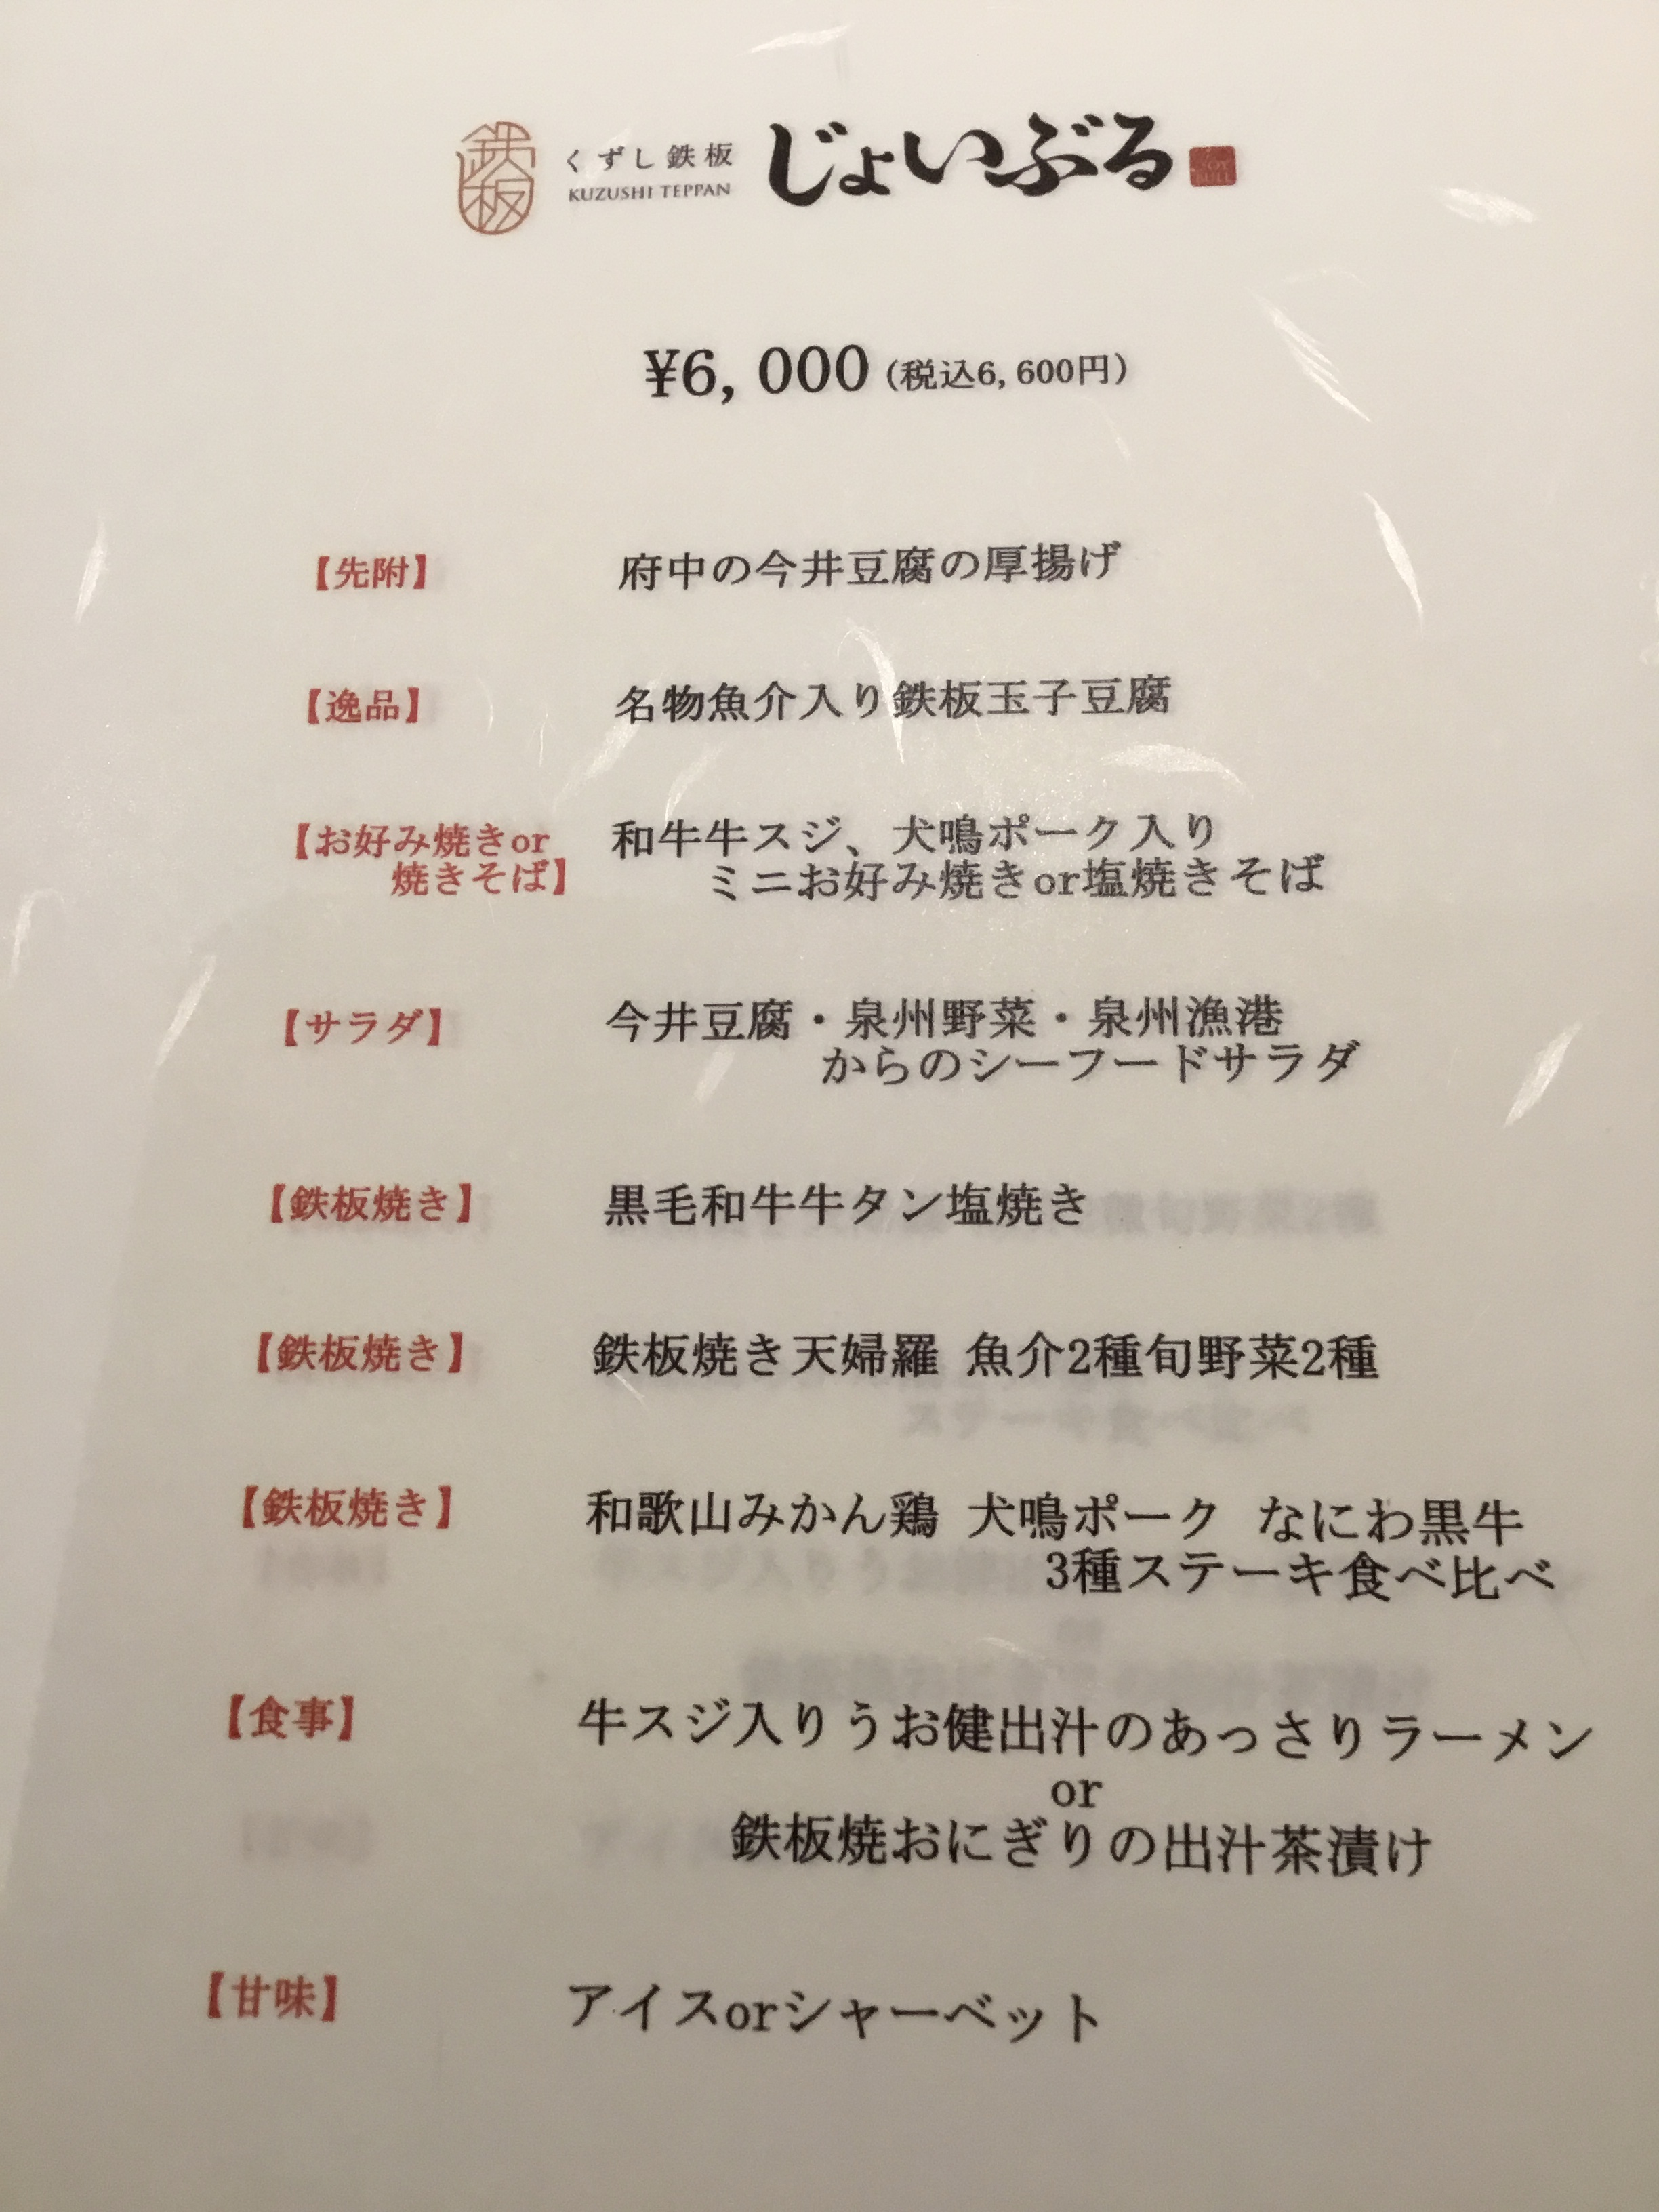 鉄板
くずし鉄板
KUZUSHI TEPPAN
じょいぶる
JOY
BULL
¥6,000(税込6,600円)
【先附】 府中の今井豆腐の厚揚げ
【逸品】 名物魚介入り鉄板玉子豆腐
【お好み焼きor 和牛牛スジ、犬鳴ポーク入り
焼きそば】 ミニお好み焼きor塩焼きそば
【サラダ】 今井豆腐・泉州野菜・泉州漁港
からのシーフードサラダ
【鉄板焼き】 黒毛和牛牛タン塩焼き
【鉄板焼き】 鉄板焼き天婦羅 魚介2種旬野菜2種
【鉄板焼き】 和歌山みかん鶏 犬鳴ポーク なにわ黒牛
3種ステーキ食べ比べ
【食事】 牛スジ入りうお健出汁のあっさりラーメン
or
鉄板焼おにぎりの出汁茶漬け
【甘味】 アイスorシャーベット